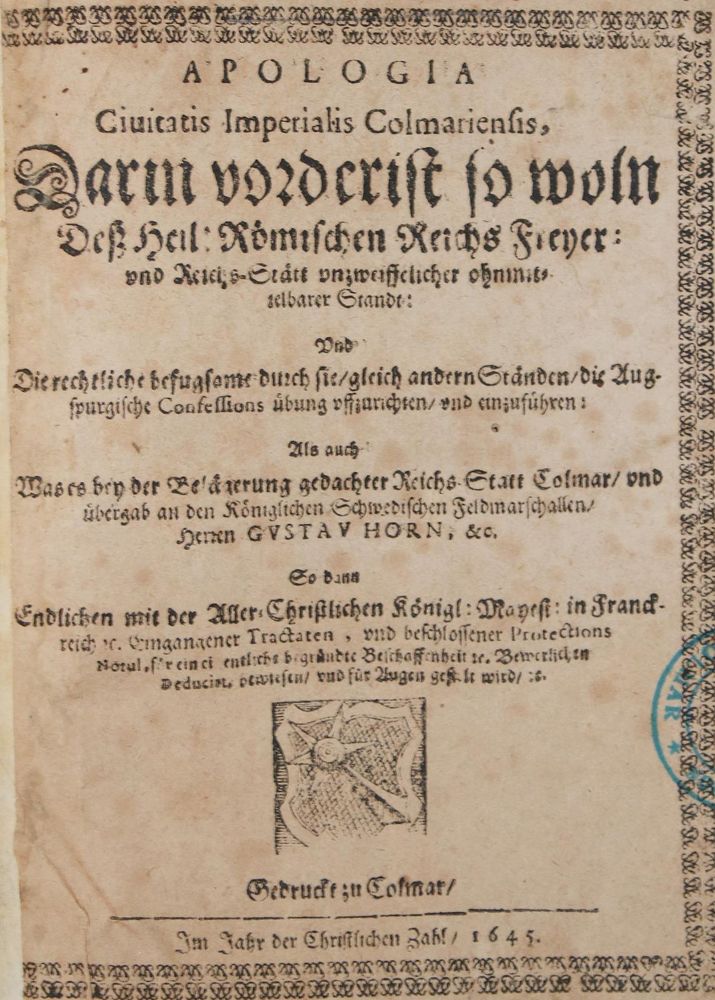 APOLOGIA
Ciuitatis Imperialis Colmariensis,
Darin vorderist so woln
Deß Heil: Römischen Reichs Freyer:
vnd Reichs-Stätt vnzweiffelicher ohnmit-
telbarer Standt:
Vnd
Die rechtliche befugsame durch sie/ gleich andern Ständen/ die Aug-
spurgische Confessions übung vffzurichten/ vnd einzuführen:
Als auch
Was es bey der Belägerung gedachter Reichs-Statt Colmar/ vnd
übergab an den Königlichen Schwedischen Feldmarschallen/
Herren GVSTAV HORN, &c.
So dann
Endlichen mit der Aller-Christlichen Königl: Mayest: in Franck-
reich ꝛc. Eingangener Tractaten, vnd beschlossener Protections
Notul, für ein eigentliche begründte Beschaffenheit ꝛc. Bewerlichen
Deducirt, bewiesen/ vnd für Augen gestelt wird/ ꝛc.
Gedruckt zu Colmar/
Im Jahr der Christlichen Zahl/ 1645.